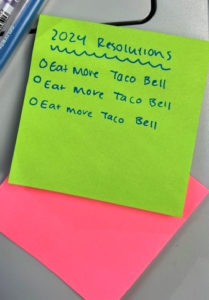 2024 Resolutions
O Eat More Taco Bell
O Eat more Taco Bell
O Eat more Taco Bell